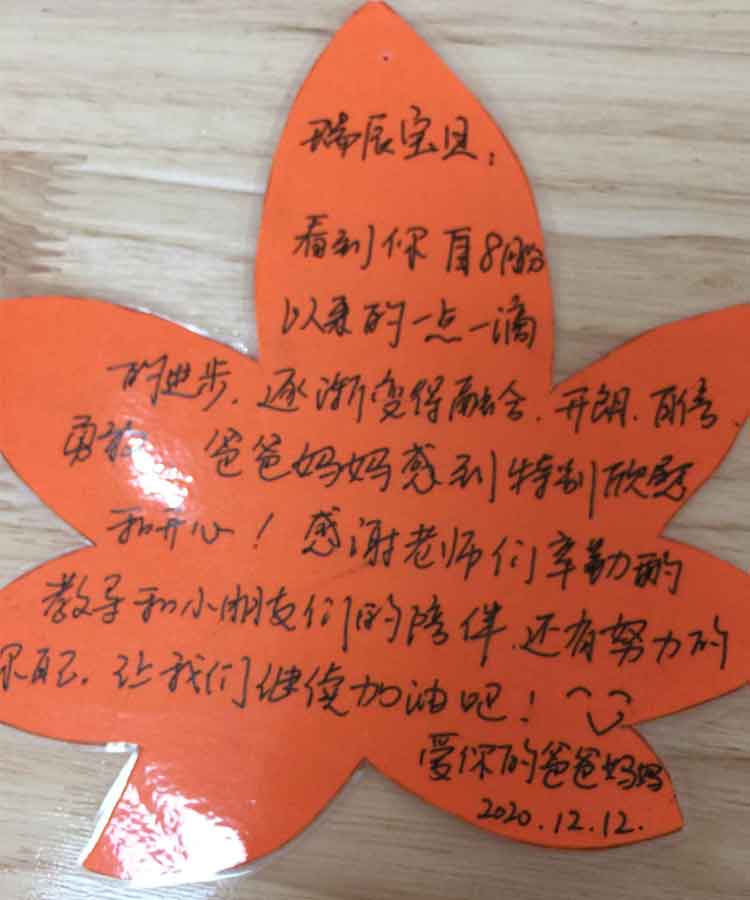 瑞辰宝贝:
看到你自8月份
以来的一点一滴
的进步,逐渐变得融合、开朗、自信、
勇敢 爸爸妈妈感到特别欣慰
和开心!感谢老师们辛勤的
教导和小朋友们的陪伴,还有努力的
你自己,让我们继续加油吧!
爱你的爸爸妈妈
2020.12.12.